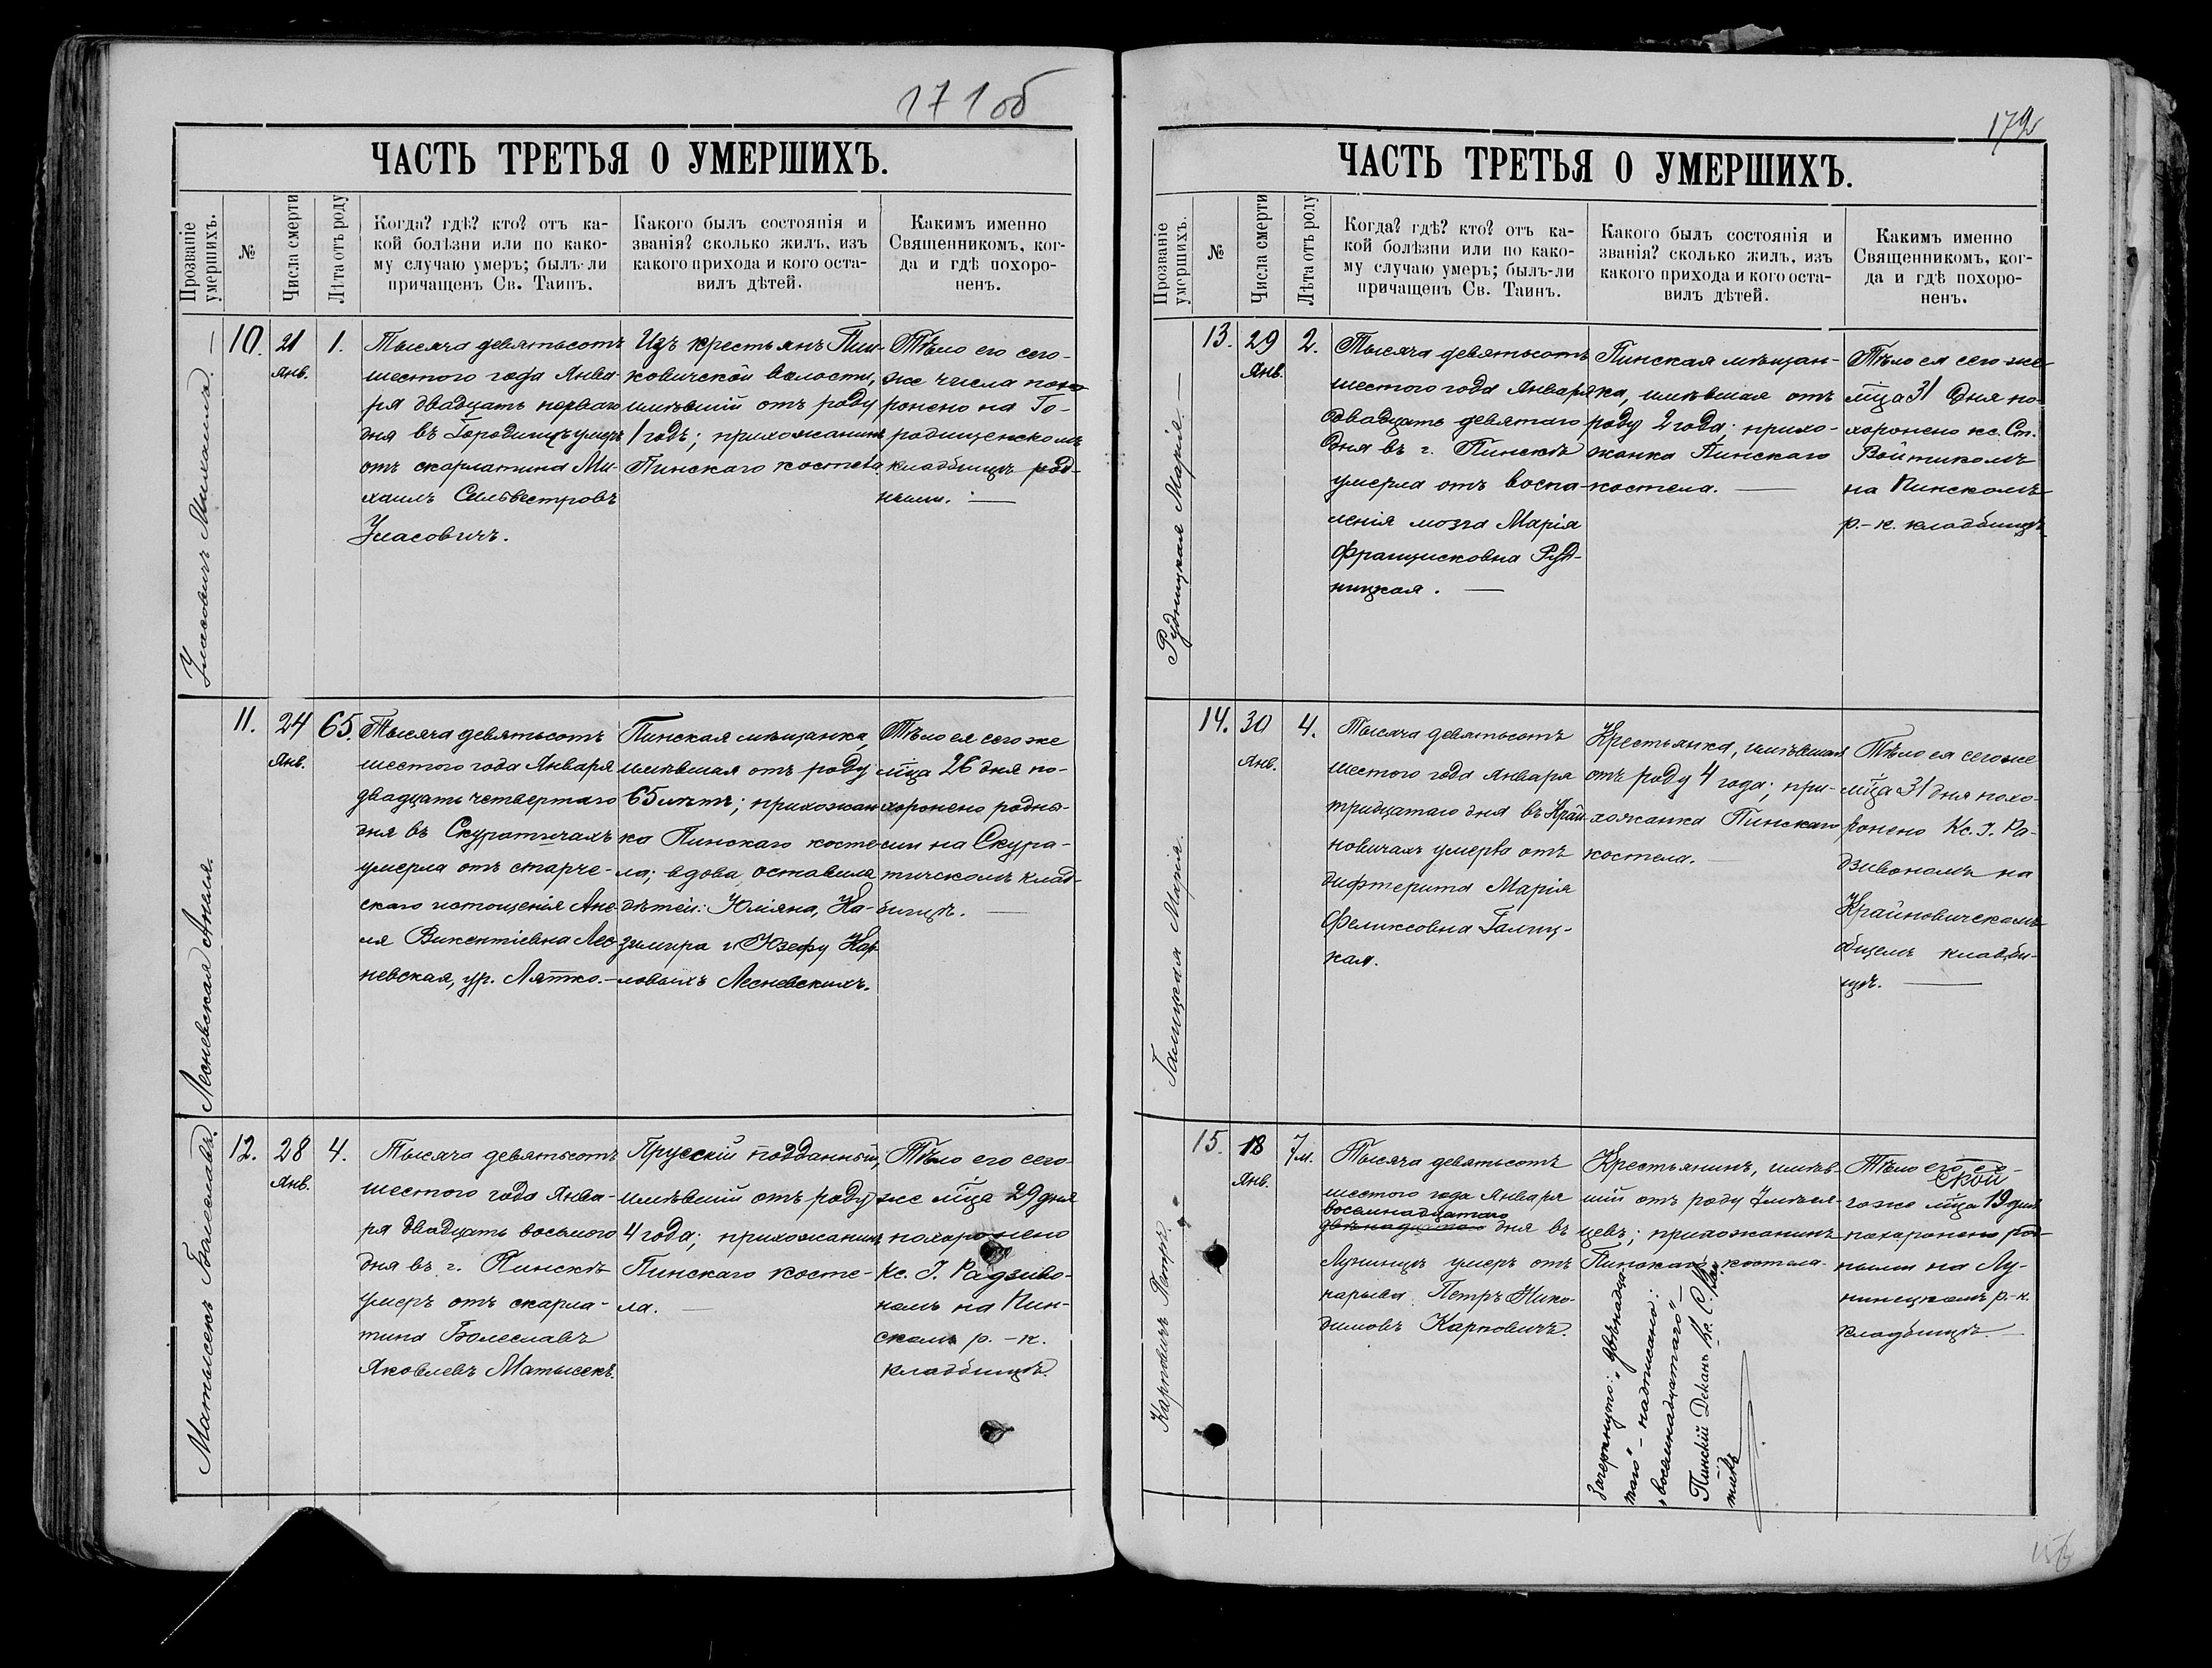 171об
ЧАСТЬ ТРЕТЬЯ О УМЕРШИХЪ.
Прозваніе
умершихъ.
№
Числа смерти
Лѣта отъ роду
Когда? гдѣ? кто? отъ ка-
кой болѣзни или по како-
му случаю умеръ; былъ-ли
причащенъ Св. Таинъ.
Какого былъ состоянія и
званія? сколько жилъ, изъ
какого прихода и кого оста-
вилъ дѣтей.
Какимъ именно
Священникомъ, ког-
да и гдѣ похоро-
ненъ.
Уласовичъ Михаилъ. —
10.
21
Янв.
1.
Тысяча девятьсотъ
шестого года Янва-
ря двадцать перваго
дня въ Городищѣ умеръ
отъ скарлатина Ми-
хаилъ Сильвестровъ
Уласовичъ.
Изъ крестьянъ Пин-
ковичской волости,
имѣвшій отъ роду
1 годъ; прихожанинъ
Пинскаго костела
Тѣло его сего-
же числа похо-
ронено на Го-
родищенскомъ
кладбищѣ род-
ными. —
Лесневская Анеля.
11.
24
Янв.
65.
Тысяча девятьсотъ
шестого года Января
двадцать четвертаго
дня въ Скуратичахъ
умерла отъ старче-
скаго истощенія Ане-
ля Викентіевна Лес-
невская, ур. Лятко. —
Пинская мѣщанка,
имѣвшая отъ роду
65 лѣтъ; прихожан-
ка Пинскаго косте-
ла; вдова, оставила
дѣтей: Юліяна, Ка-
зимира и Юзефу Кар-
ловыхъ Лесневскихъ.
Тѣло ея сего же
м͠ца 26 дня по-
хоронено родны-
ми на Скура-
тичскомъ клад-
бищѣ. —
Матысекъ Болеславъ.
12.
28
Янв.
4.
Тысяча девятьсотъ
шестого года Янва-
ря двадцать восьмого
дня въ г. Пинскѣ
умеръ отъ скарла-
тина Болеславъ
Яковлевъ Матысекъ.
Прусскій подданный,
имѣвшій отъ роду
4 года; прихожанинъ
Пинскаго косте-
ла. —
Тѣло его сего-
же м͠ца 29 дня
похоронено
Кс. І. Радзиво-
номъ на Пин-
скомъ р. - к.
кладбищѣ.
172
ЧАСТЬ ТРЕТЬЯ О УМЕРШИХЪ.
Прозваніе
умершихъ.
№
Числа смерти
Лѣта отъ роду
Когда? гдѣ? кто? отъ ка-
кой болѣзни или по како-
му случаю умеръ; былъ-ли
причащенъ Св. Таинъ.
Какого былъ состоянія и
званія? сколько жилъ, изъ
какого прихода и кого оста-
вилъ дѣтей.
Какимъ именно
Священникомъ, ког-
да и гдѣ похоро-
ненъ.
Рудницкая Марія. —
13.
29
Янв.
2.
Тысяча девятьсотъ
шестого года Января
двадцать девятаго
дня въ г. Пинскѣ
умерла отъ воспа-
ленія мозга Марія
Францисковна Руд-
ницкая. —
Пинская мѣщан-
ка, имѣвшая отъ
роду 2 года; прихо-
жанка Пинскаго
костела. —
Тѣло ея сего же
м͠ца 31 дня по-
хоронено кс. Ст.
Войтикомъ
на Пинскомъ
р. - к. кладбищѣ
Галицкая Марія.
14.
30
Янв.
4.
Тысяча девятьсотъ
шестого года Января
тридцатаго дня въ Край-
новичахъ умерла отъ
дифтерита Марія
Феликсовна Галиц-
кая.
Крестьянка, имѣвшая
отъ роду 4 года; при-
хожанка Пинскаго
костела. —
Тѣло ея сего же
м͠ца 31 дня похо-
ронено Кс. І. Ра-
дзивономъ на
Крайновичскомъ
общемъ кладби-
щѣ. —
Карповичъ Петръ.
15.
18
Янв.
7 м.
Тысяча девятьсотъ
шестого года Января
восемнадцатаго
двѣнадцатаго дня въ
Лунинцѣ умеръ отъ
нарыва Петръ Нико-
димовъ Карповичъ.
Крестьянинъ, имѣв-
шій отъ роду 7 мѣся-
цевъ; прихожанинъ
Пинскаго костела.
Зачеркнуто: „двѣнадца-
таго“ - надписано:
„восемнадцатаго“ -
Пинскій Деканъ Кс. С. Вой-
тикъ
Тѣло его се-
ской
гоже м͠ца 19 дня
похоронено род-
ными на Лу-
нинецкомъ р. - к.
кладбищѣ. —